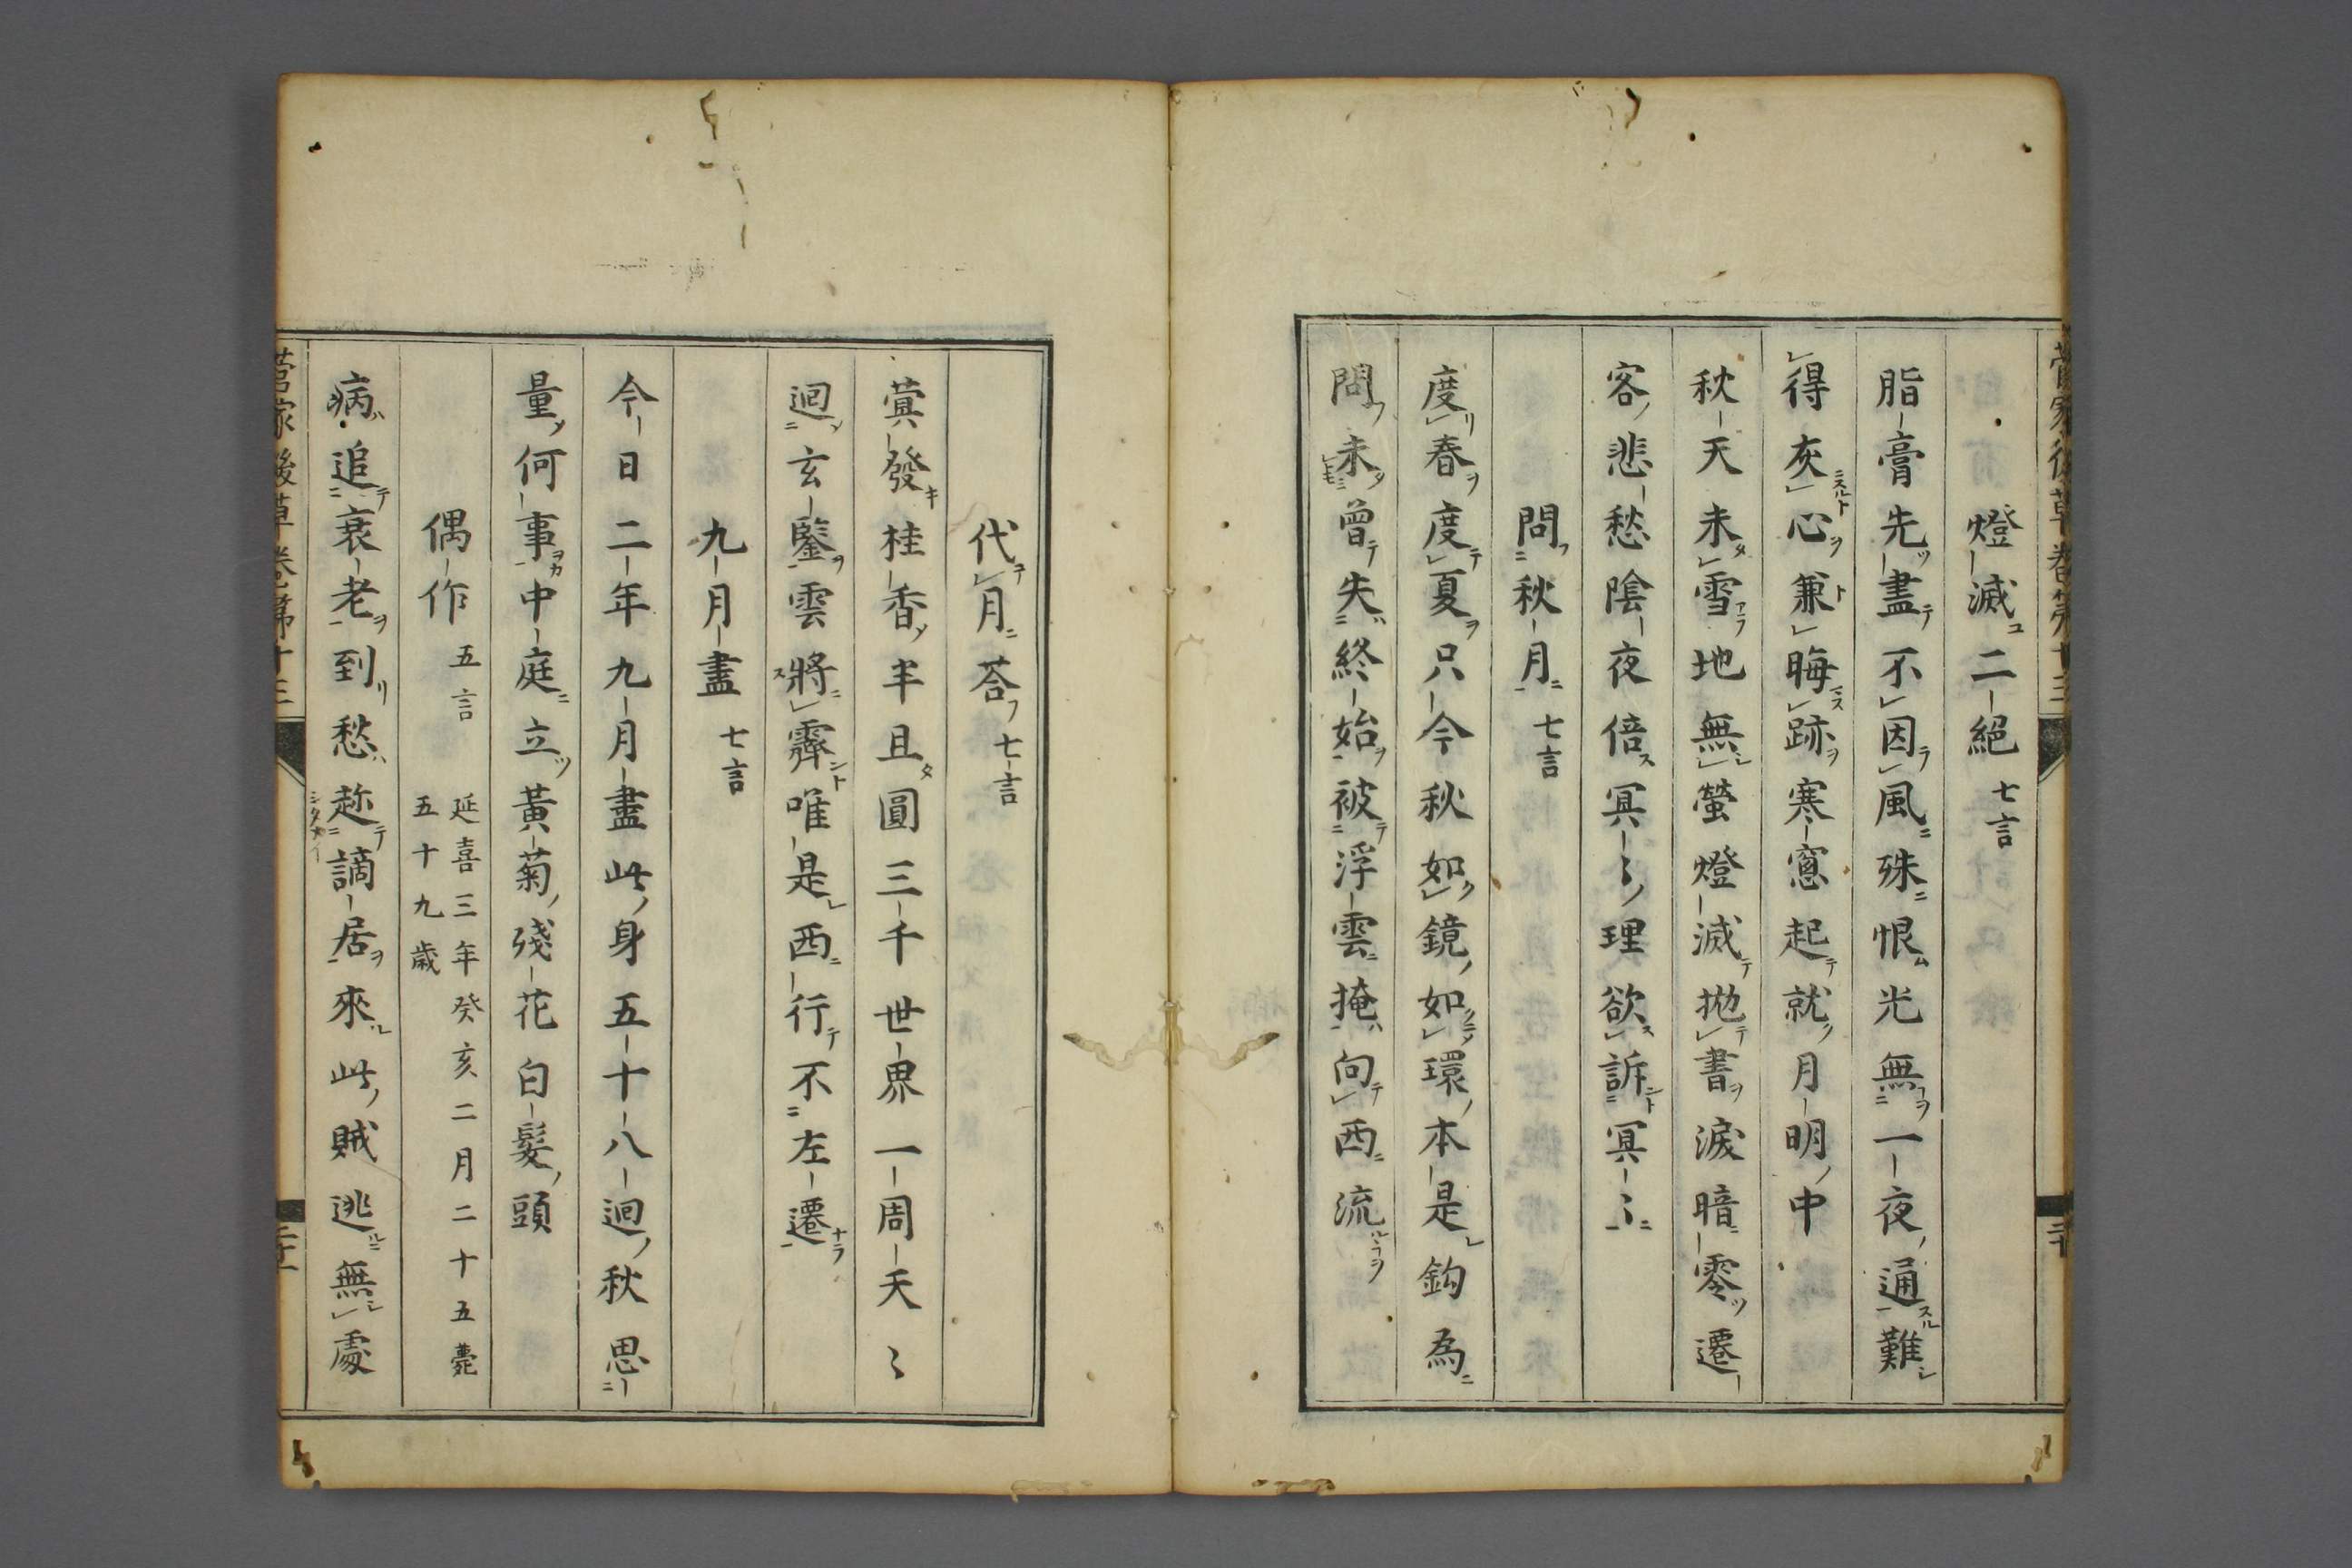 燈滅二絕 七言
脂膏先盡不因風殊恨光無一夜通難
得灰心兼晦跡寒窓起就月明中
秋天未雪地無螢燈滅拋書淚暗零遷
客悲愁陰夜倍冥〻理欲訴冥〻
問秋月 七言
度春度夏只今秋如鏡如環本是鈎為
問未曾失終始被浮雲掩向西流
代月荅 七言
蓂發桂香半且圓三千世界一周天〻
迴玄鑒雲將霽唯是西行不左遷
九月盡 七言
今日二年九月盡此身五十八迴秋思
量何事中庭立黃菊殘花白髮頭
偶作 五言 延喜三年癸亥二月二十五薨
五十九歲
病追衰老到愁趂謫居來此賊逃無處
菅家後草卷第十三